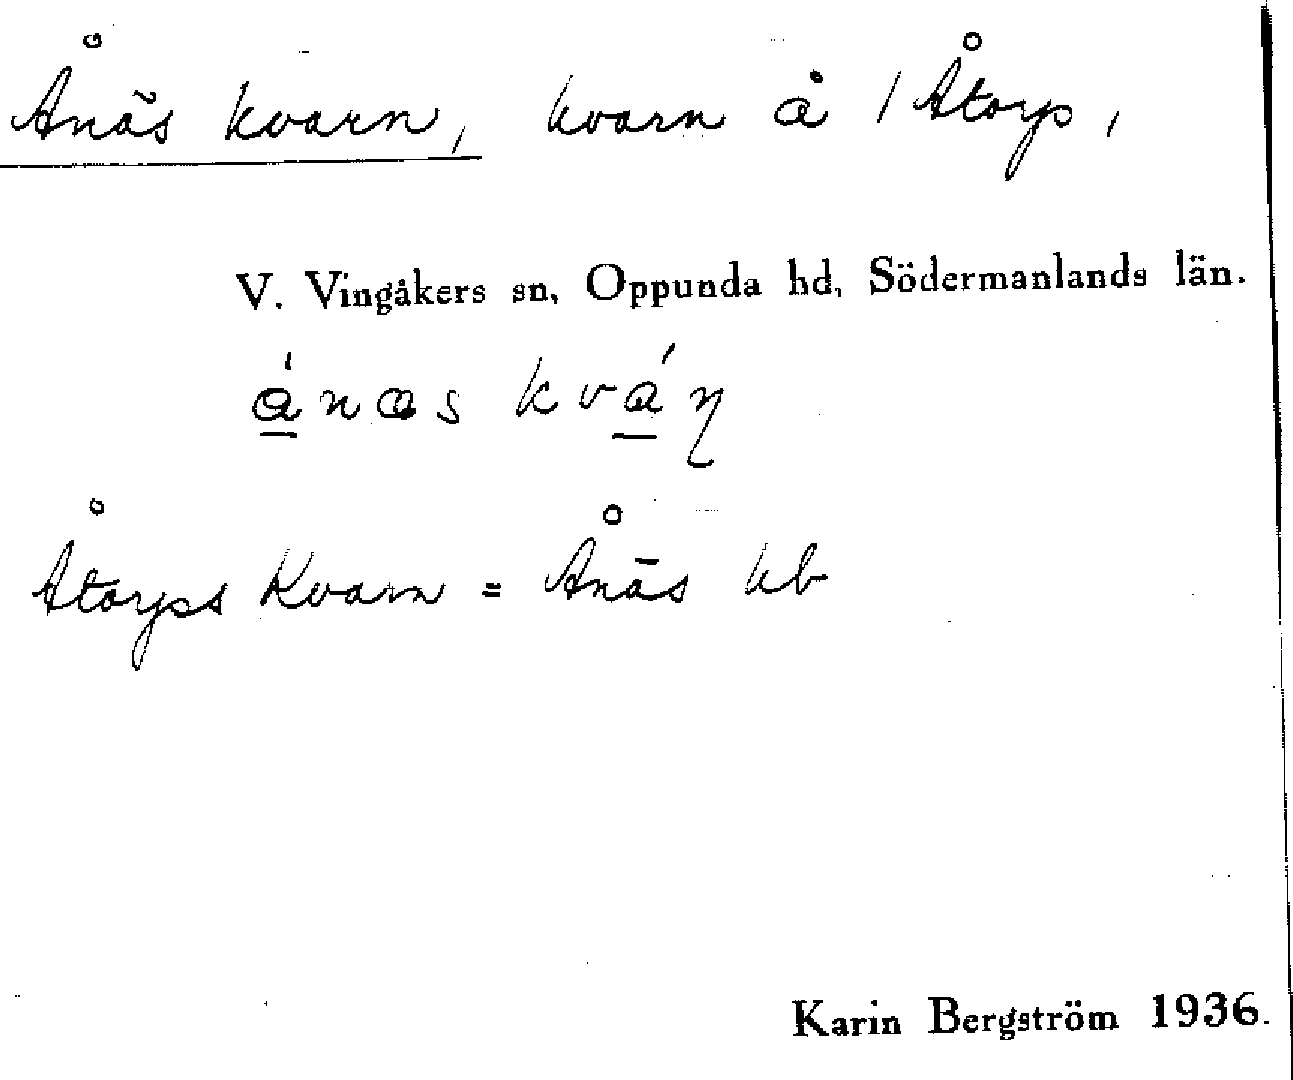 Ånäs kvarn, kvarn å 1 Åtorp,
V. Vingåkers sn, Oppunda hd, Södermanlands län.
Åtorps Kvarn = Ånäs kb
Karin Bergström 1936.